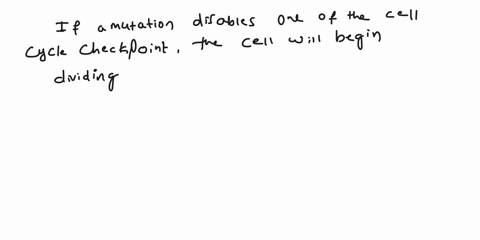 If a mutation disables one of the cell
cycle checkpoint, the cell will begin
dividing